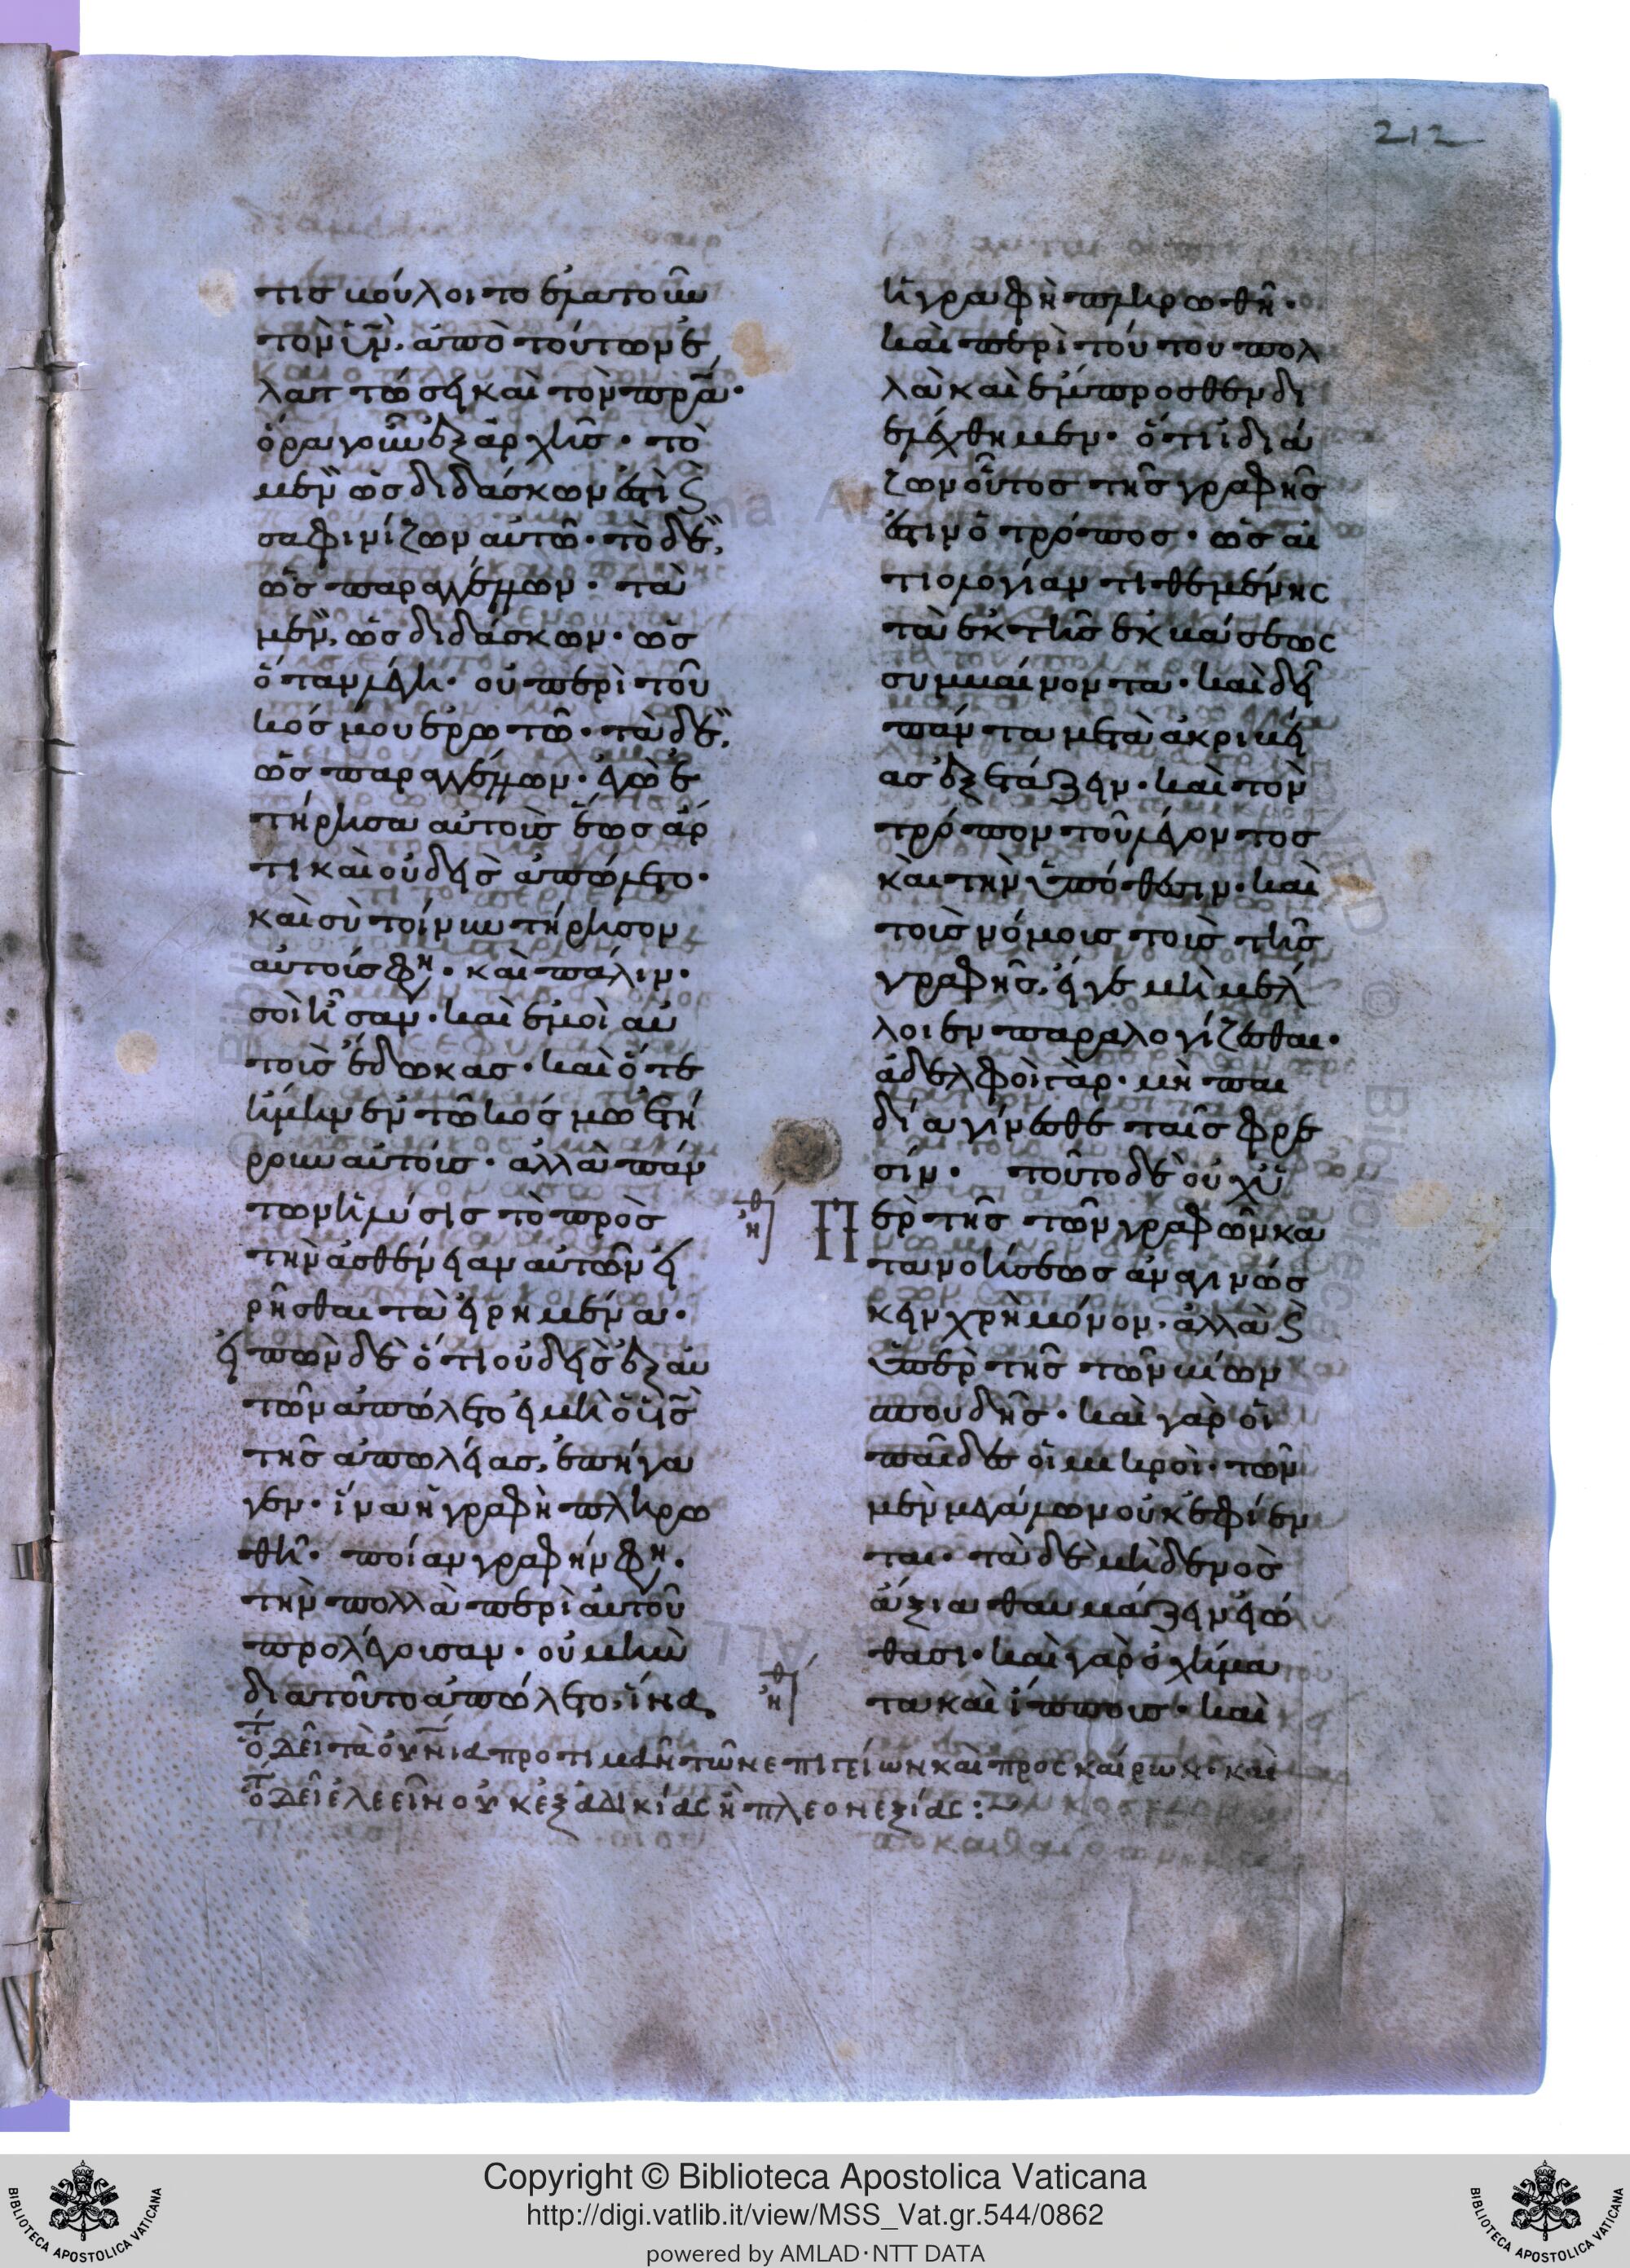 212
τις βούλοιτο ἐλαττοῦν
τὸν ὑῒν̅, ἀπὸ τούτων ἐ
λαττώσει καὶ τὸν πρ̅α·
ὅρα γοῦν ἐξ ἀρχῆς· τὸ
μὲν ὡς διδάσκων ἐστὶ ϗ
σαφηνίζων αὐτῶ· τὸ δὲ,
ὡς παραγγέλλων· τὰ
μὲν, ὡς διδάσκων· ὡς
ὅταν λέγη· οὐ περὶ τοῦ
κόσμου ἐρωτῶ· τὰ δὲ,
ὡς παραγγέλλων· ἐγὼ ἐ
τήρησα αὐτοὺς ἕως ἄρ
τι καὶ οὐδεὶς ἀπώλετο·
καὶ σὺ τοίνυν τήρησον
αὐτούς φη· καὶ πάλιν·
σοὶ ἦσαν· καὶ ἐμοὶ αὐ
τοὺς ἔδωκας· καὶ ὅτε
ἤμην ἐν τῶ κόσμω ἐτή
ρουν αὐτούς· ἀλλὰ πάν
των ἡ λύσις τὸ πρὸς
τὴν ἀσθένειαν αὐτῶν εἰ
ρῆσθαι τὰ εἰρημένα·
εἰπὼν δὲ ὅτι οὐδεὶς ἐξ αὐ
τῶν ἀπώλετο εἰ μὴ ὁ ὑϊς̅
τῆς ἀπωλείας, ἐπήγα
γεν· ἵνα ἡ γραφὴ πληρω
θῆ· ποίαν γραφήν φη·
τὴν πολλὰ περὶ αὐτοῦ
προλέγουσαν· οὐ μὴν
διατοῦτο ἀπώλετο, ἵνα
ἡ γραφὴ πληρωθῆ·
καὶ περὶ τούτου πολ
λὰ καὶ ἔμπροσθεν δι
ελέχθημεν· ὅτι ἰδιά
ζων οὗτος τῆς γραφῆς
ἐστιν ὁ τρόπος· ὡς αἰ
τιολογίαν τιθεμένης
τὰ ἐκ τῆς ἐκβάσεως
συμβαίνοντα· καὶ δεῖ
πάντα μετὰ ἀκριβεί
ας ἐξετάζειν· καὶ τὸν
τρόπον τοῦ λέγοντος
καὶ τὴν ὑπόθεσιν· καὶ
τοὺς νόμους τοὺς τῆς
γραφῆς, εἴγε μὴ μέλ
λοιεν παραλογίζεσθαι·
ἀδελφοὶ γὰρ· μὴ παι
δία γίνεσθε ταῖς φρε
σίν· τοῦτο δὲ οὐχ ὑ
ἠθ Πὲρ τῆς τῶν γραφῶν κα
τανοήσεως ἀναγινώσ
κειν χρὴ μόνον· ἀλλὰ ϗ
ὑπὲρ τῆς τῶν βίων
σπουδῆς· καὶ γὰρ οἱ
παῖδες οἱ μικροὶ· τῶν
μὲν μεγάλων οὐκ ἐφίεν
ται· τὰ δὲ μηδενὸς
ἄξια θαυμάζειν εἰώ
θασι· καὶ γὰρ ὀχήμα
ἠθ τα καὶ ἵππους· καὶ
ὅτι δεῖ τὰ οὐράνια προτιμᾶν τῶν ἐπιγείων καὶ προσκαίρων· καὶ
ὅτι δεῖ ἐλεεῖν οὐκ ἐξ ἀδικίας ἢ πλεονεξίας:~
Copyright © Biblioteca Apostolica Vaticana
http://digi.vatlib.it/view/MSS_Vat.gr.544/0862
powered by AMLAD·NTT DATA
BIBLIOTECA APOSTOLICA VATICANA
BIBLIOTECA APOSTOLICA VATICANA